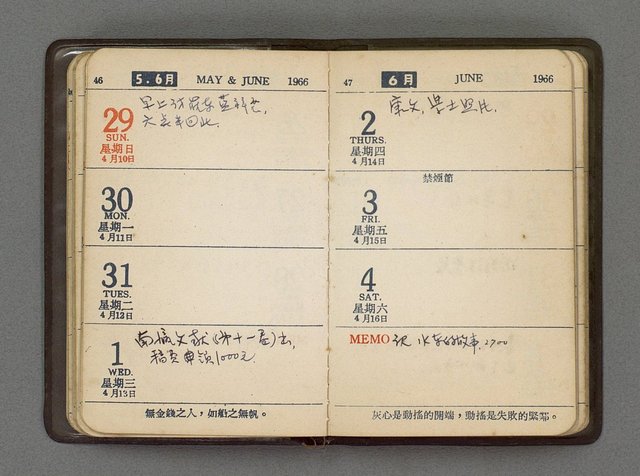 46 5.6月 MAY & JUNE 1966
29
SUN.
星期日
4月10日
早上
30
MON.
星期一
4月11日
31
TUES.
星期二
4月12日
1
WED.
星期三
4月13日
南瀛文獻(第十一卷)出,
稿費申領1000元
無金錢之人,如船之無帆。
47 6月 JUNE 1966
2
THURS.
星期四
4月14日
學士照片.
禁煙節
3
FRI.
星期五
4月15日
4
SAT.
星期六
4月16日
MEMO 故事. 2700
灰心是動搖的開端,動搖是失敗的緊鄰。